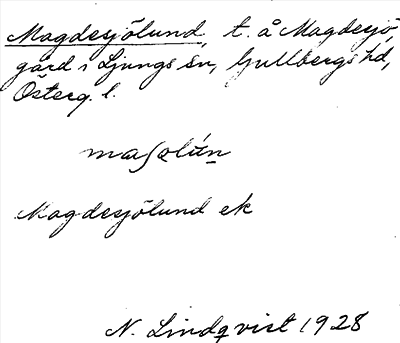 Magdesjölund, t. å Magdesjö,
gård i Ljungs sn, Gullbergs hd,
Österg. l.
maʃɷlún
Magdesjölund ek
N. Lindqvist 1928